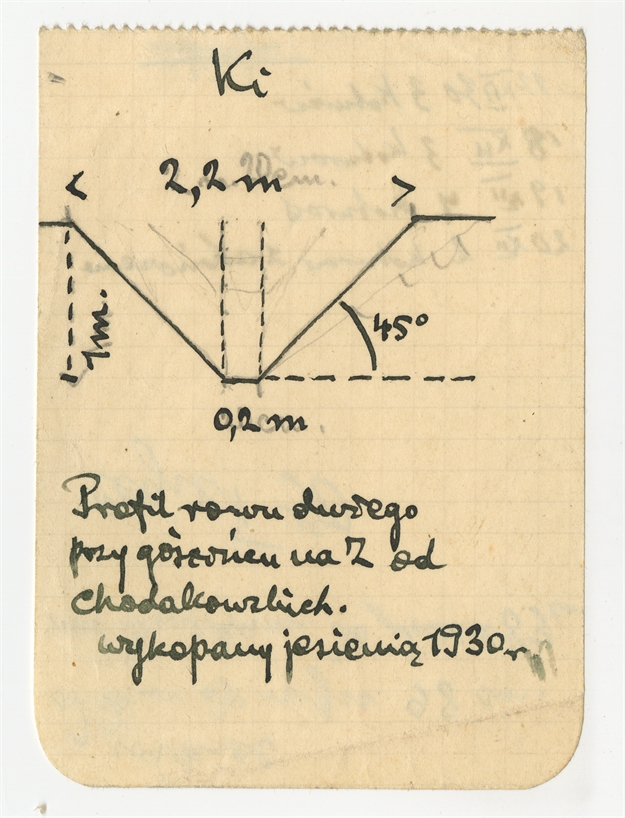 Ki
2,2 m
1 m.
45°
0,2 m
Profil rowu dużego
przy gościńcu na Z od
Chodakowskich.
wykopany jesienią 1930 r.